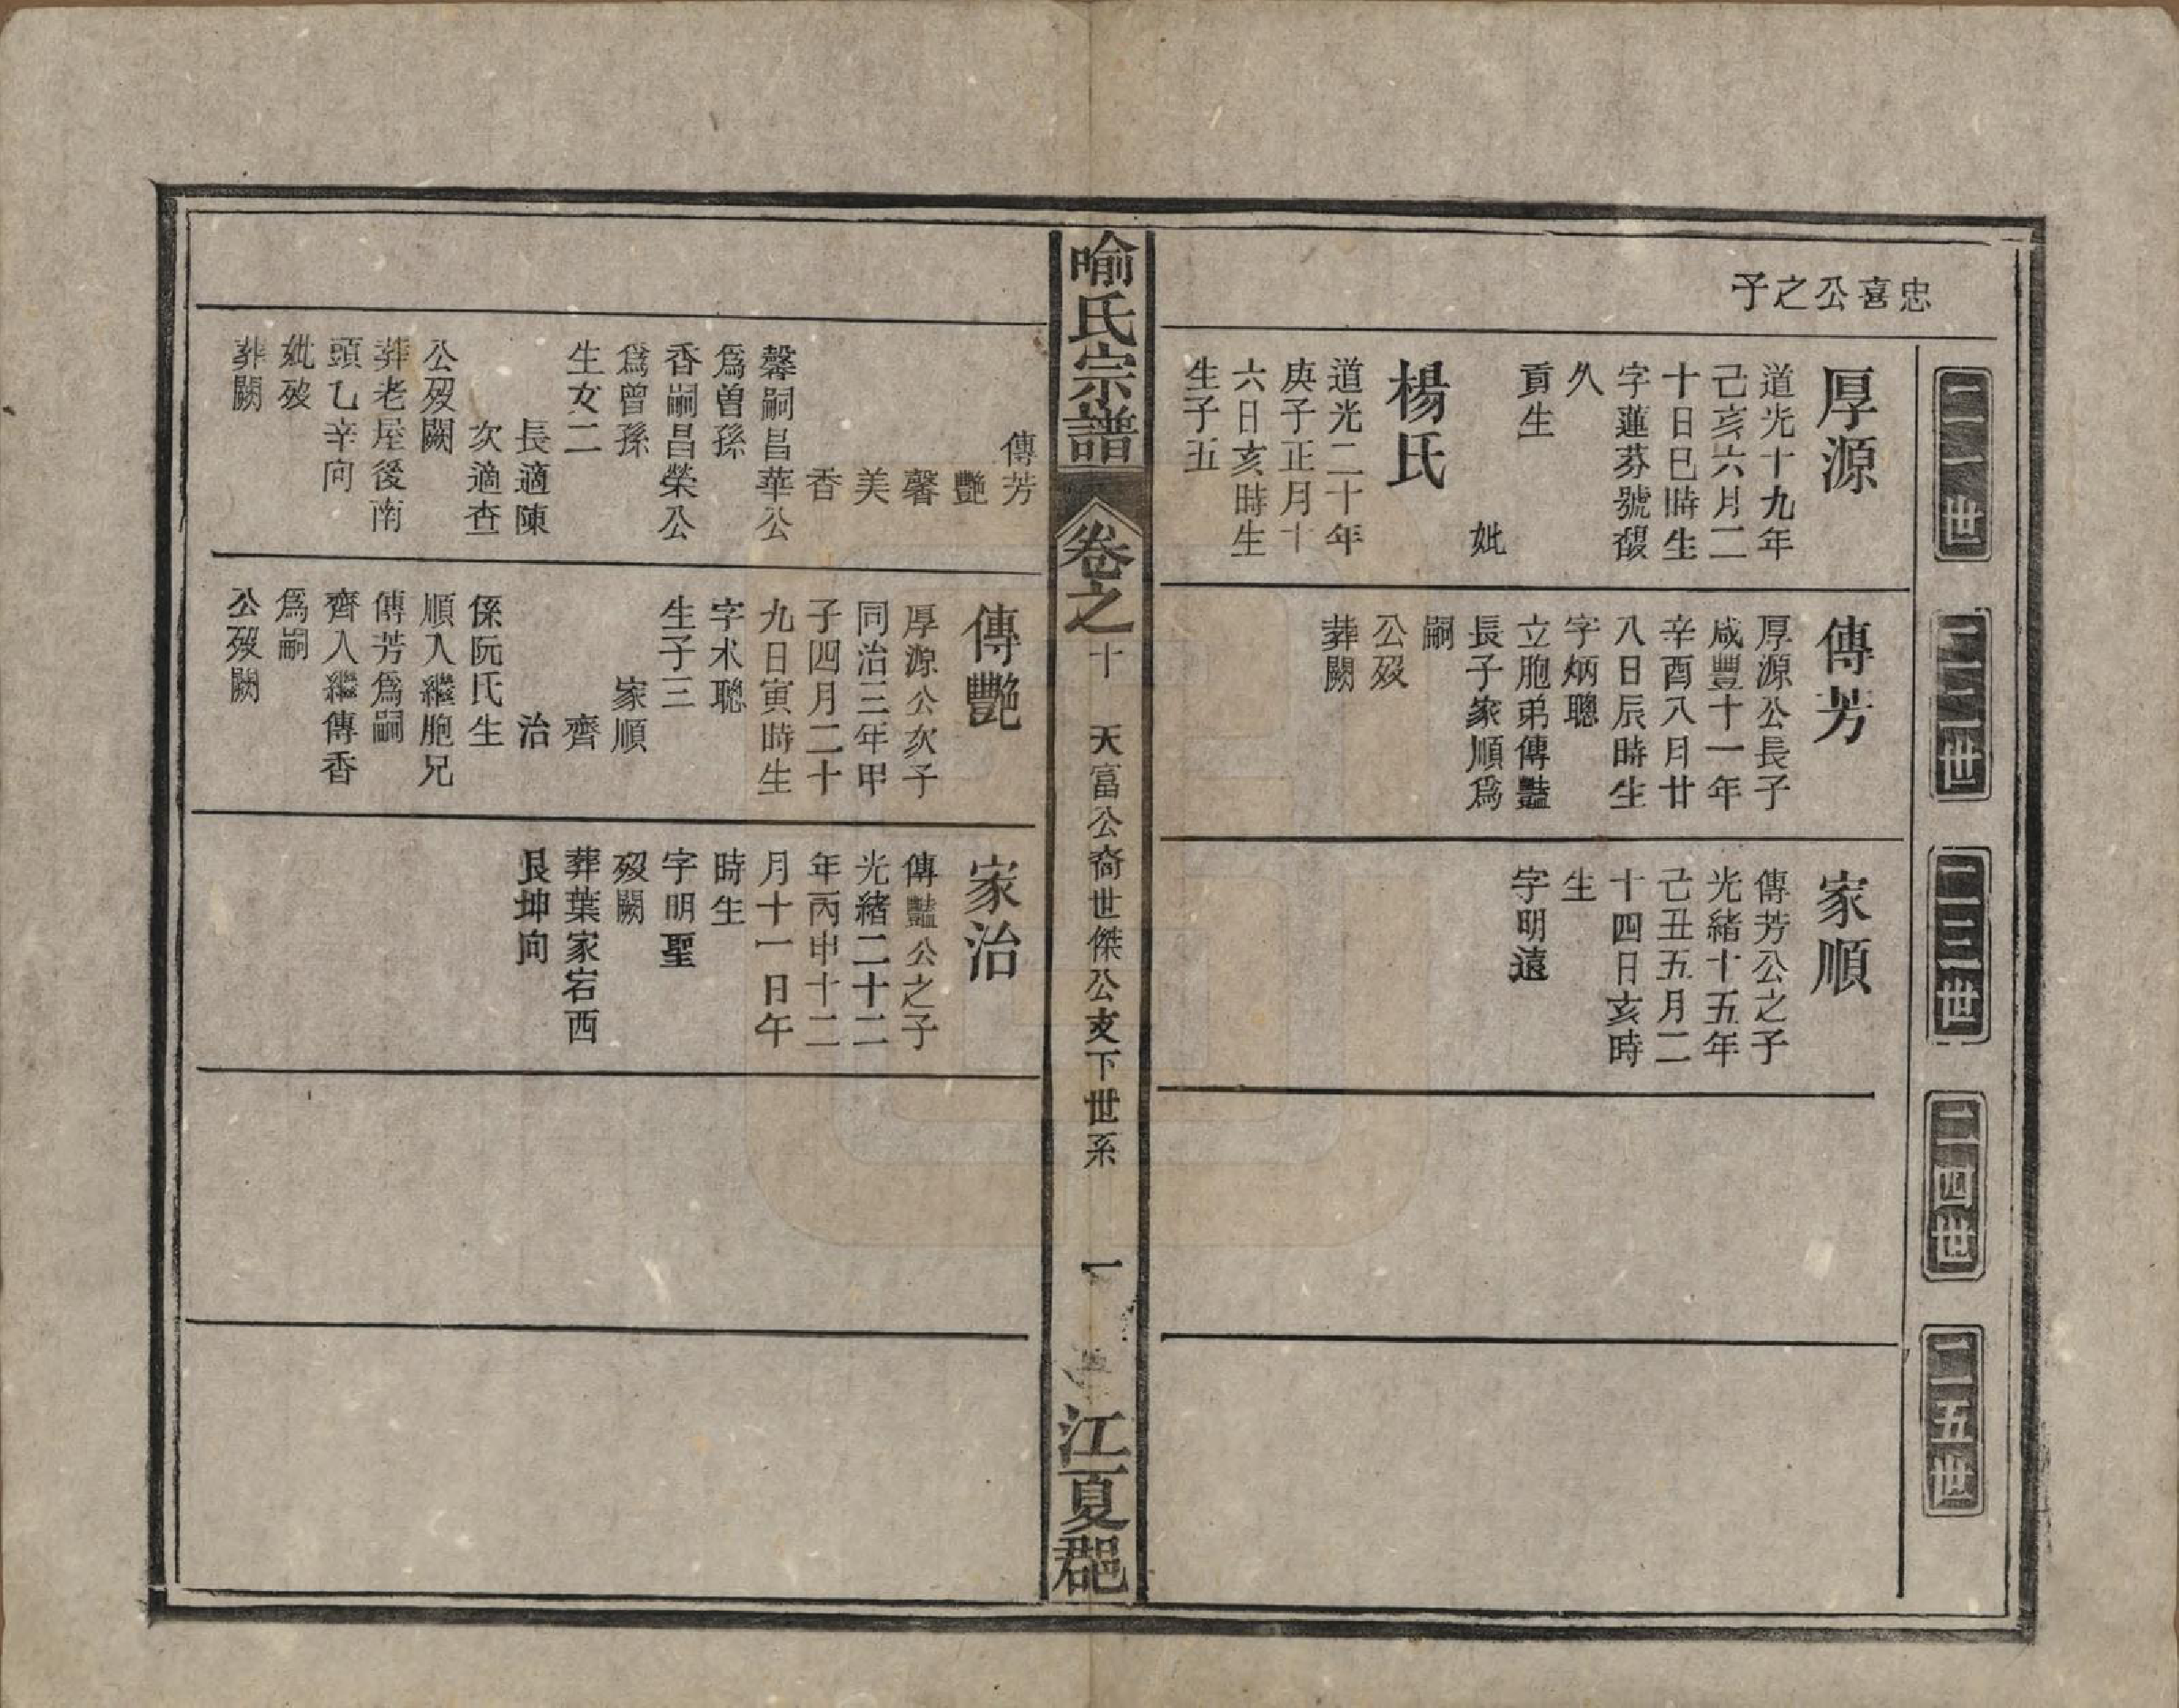 忠喜公之子
二一世
二二世
二三世
二四世
二五世
厚源
道光十九年
己亥六月二
十日巳時生
字蓮芬號馥
久
貢生
妣
楊氏
道光二十年
庚子正月十
六日亥時生
生子五
傳芳
厚源公長子
咸豐十一年
辛酉八月廿
八日辰時生
字炳聰
立胞弟傳豔
長子家順為
嗣
公歿
葬闕
家順
傳芳公之子
光緒十五年
己丑五月二
十四日亥時
生
字明遠
喻氏宗譜
卷之十
天富公裔世傑公支下世系
一
江夏郡
傳芳
艷
馨
美
香
馨嗣昌華公
爲曾孫
香嗣昌榮公
爲曾孫
生女二
長適陳
次適查
公歿闕
葬老屋後南
頭乙辛向
妣歿
葬闕
傳艷
厚源公次子
同治三年甲
子四月二十
九日寅時生
字术聰
生子三
家順
齊
治
係阮氏生
順入繼胞兄
傳芳爲嗣
齊入繼傳香
爲嗣
公歿闕
家治
傳豔公之子
光緒二十二
年丙申十二
月十一日午
時生
字明聖
歿闕
葬葉家宕西
艮坤向